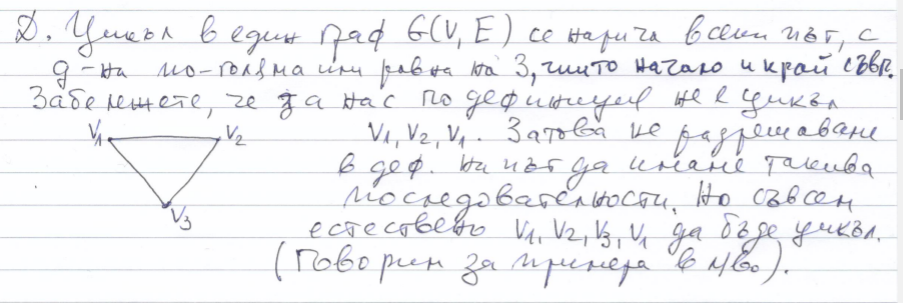 Д. Цикъл в един граф G(V, E) се нарича всеки път, с
д-на по-голяма или равна на 3, чиито начало и край съвп.
Забележете, че за нас по дефиниция не е цикъл
V1 V2 V1, V2, V1. Затова не разрешаваме
в деф. на път да имаме такива
V3 последователности. Но съвсем
естествено V1, V2, V3, V1 да бъде цикъл.
(Говорим за примера в ляво).